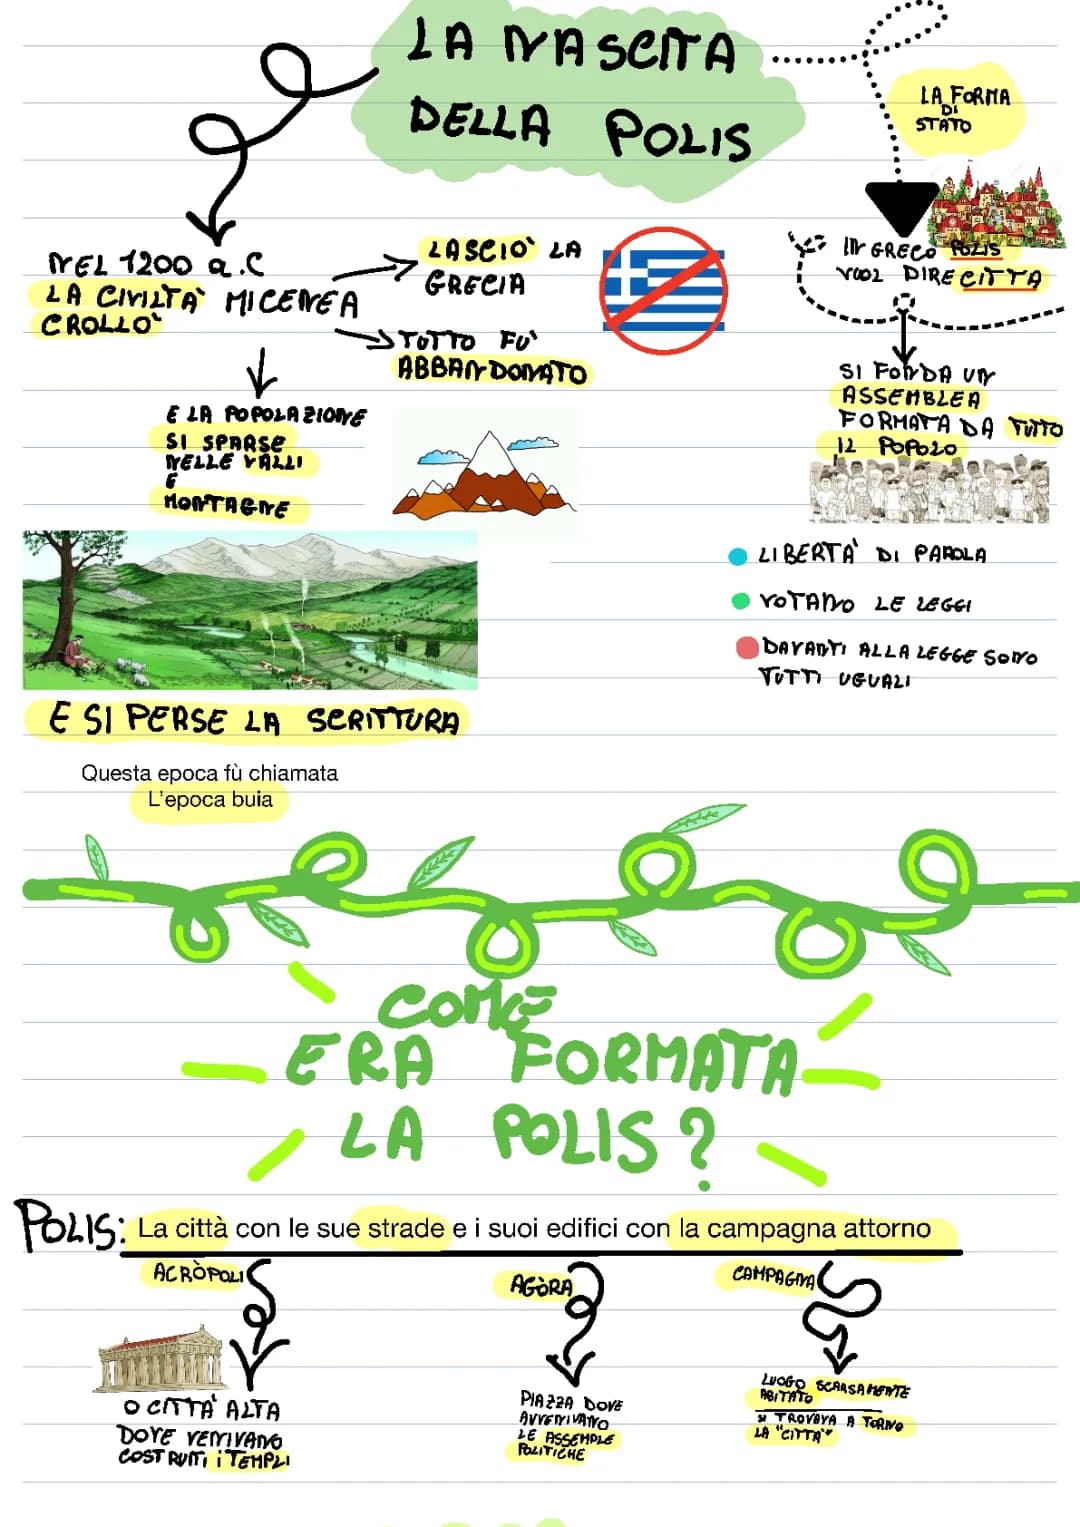 LA NASCITA
DELLA POLIS
LA FORMA
DI
STATO
NEL 1200 a.C
LA CIVILTA' MICENEA
CROLLO'
LASCIO' LA
GRECIA
TUTTO FU'
ABBANDONATO
E LA POPOLAZIONE
SI SPARSE
NELLE VALLI
E
MONTAGNE
E SI PERSE LA SCRITTURA
Questa epoca fù chiamata
L'epoca buia
IN GRECO POLIS
VUOL DIRE CITTA
SI FONDA UN
ASSEMBLEA
FORMATA DA TUTTO
IL POPOLO
LIBERTA' DI PAROLA
VOTANO LE LEGGI
DAVANTI ALLA LEGGE SONO
TUTTI UGUALI
COME
ERA FORMATA
LA POLIS?
POLIS: La città con le sue strade e i suoi edifici con la campagna attorno
ACRÒPOLI
O CITTA' ALTA
DOVE VENIVANO
COSTRUITI i TEMPLI
AGÒRA
PIAZZA DOVE
AVVENIVANO
LE ASSEMPLE
POLITICHE
CAMPAGNA
LUOGO SCARSAMENTE
ABITATO
SI TROVAVA A TORNO
LA "CITTA'"